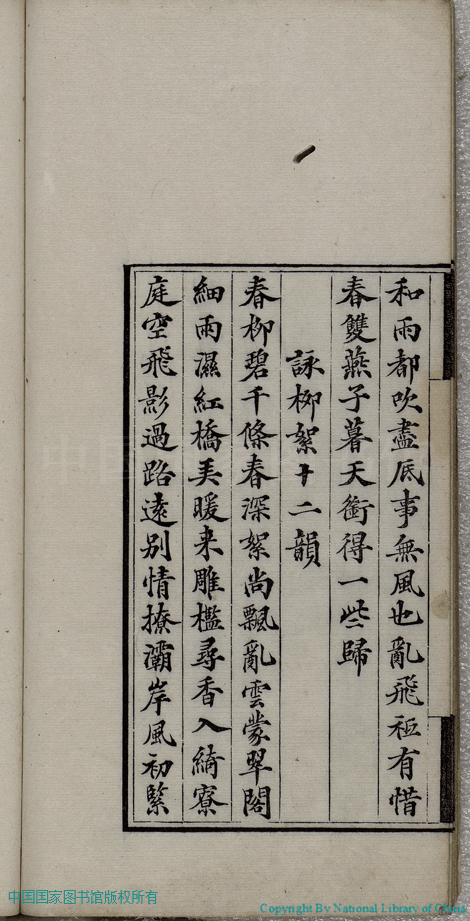 和雨都吹盡底事無風也亂飛祗有惜
春雙燕子暮天銜得一些歸
詠柳絮十二韻
春柳碧千條春深絮尚飄亂雲蒙翠閣
細雨濕紅橋弄暖来雕檻尋香入綺寮
庭空飛影過路遠別情撩灞岸風初緊
中国国家图书馆版权所有
Copyright By National Library of China